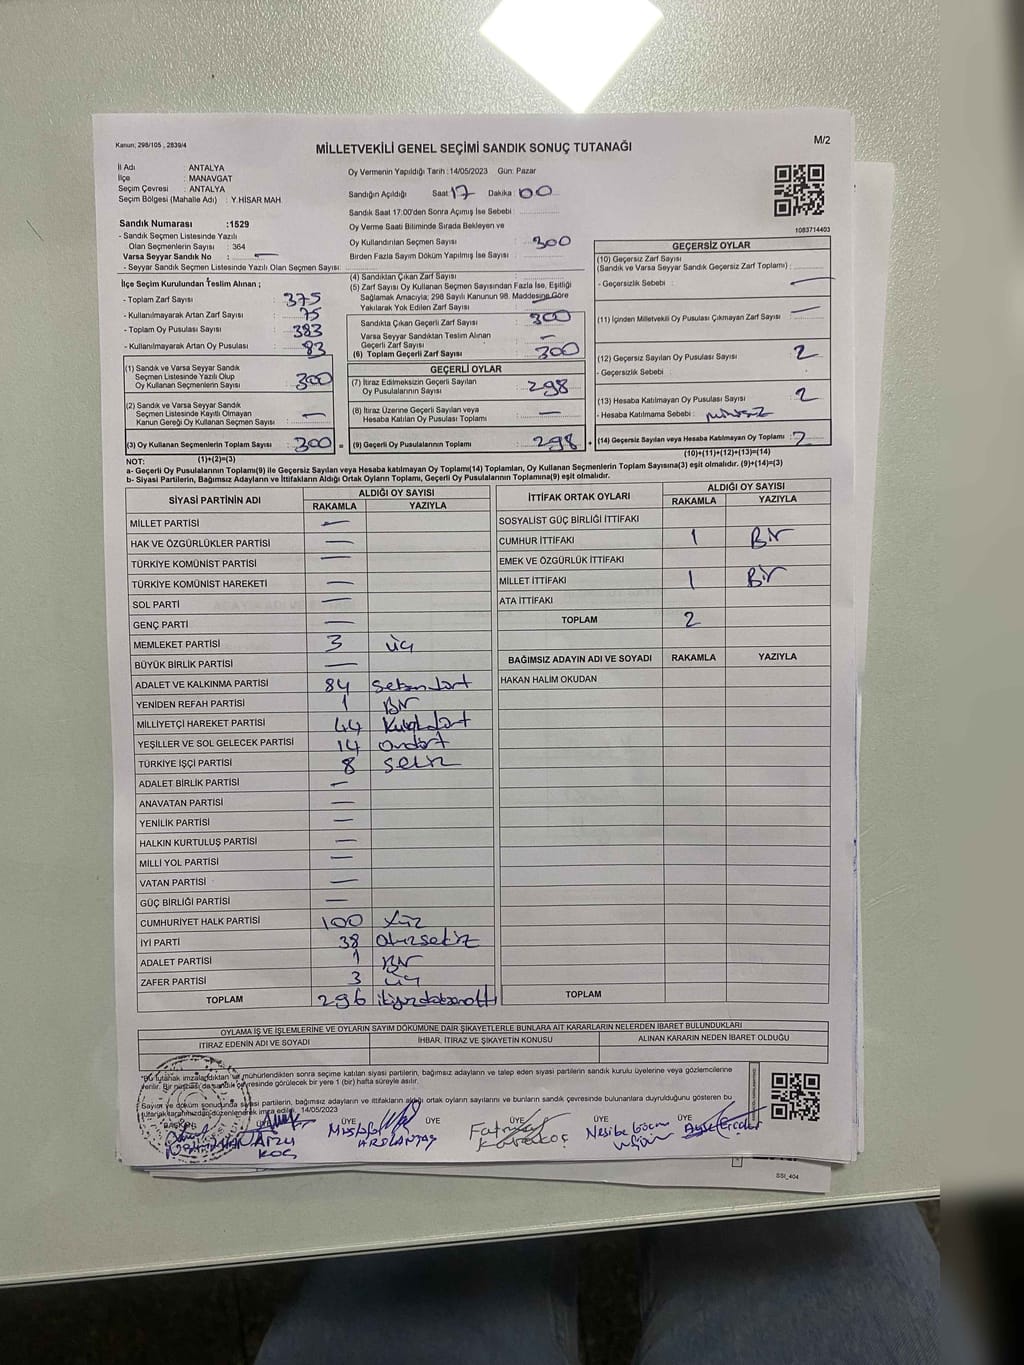 Kanun; 298/105 , 2839/4
MİLLETVEKİLİ GENEL SEÇİMİ SANDIK SONUÇ TUTANAĞI
M/2
İl Adı : ANTALYA
İlçe : MANAVGAT
Seçim Çevresi : ANTALYA
Seçim Bölgesi (Mahalle Adı) : Y.HİSAR MAH
Sandık Numarası :1529
- Sandık Seçmen Listesinde Yazılı
Olan Seçmenlerin Sayısı : 364
Varsa Seyyar Sandık No : —
- Seyyar Sandık Seçmen Listesinde Yazılı Olan Seçmen Sayısı:
İlçe Seçim Kurulundan Teslim Alınan ;
- Toplam Zarf Sayısı : 375
- Kullanılmayarak Artan Zarf Sayısı : 75
- Toplam Oy Pusulası Sayısı : 383
- Kullanılmayarak Artan Oy Pusulası : 83
(1) Sandık ve Varsa Seyyar Sandık
Seçmen Listesinde Yazılı Olup
Oy Kullanan Seçmenlerin Sayısı : 300
(2) Sandık ve Varsa Seyyar Sandık
Seçmen Listesinde Kayıtlı Olmayan
Kanun Gereği Oy Kullanan Seçmen Sayısı : —
(3) Oy Kullanan Seçmenlerin Toplam Sayısı : 300 =
(1)+(2)=(3)
Oy Vermenin Yapıldığı Tarih : 14/05/2023 Gün: Pazar
Sandığın Açıldığı Saat : 17 Dakika : 00
Sandık Saat 17:00'den Sonra Açımış İse Sebebi :
Oy Verme Saati Bitiminde Sırada Bekleyen ve
Oy Kullandırılan Seçmen Sayısı : 300
Birden Fazla Sayım Döküm Yapılmış İse Sayısı :
(4) Sandıktan Çıkan Zarf Sayısı :
(5) Zarf Sayısı Oy Kullanan Seçmen Sayısından Fazla İse, Eşitliği
Sağlamak Amacıyla; 298 Sayılı Kanunun 98. Maddesine Göre
Yakılarak Yok Edilen Zarf Sayısı :
Sandıkta Çıkan Geçerli Zarf Sayısı : 300
Varsa Seyyar Sandıktan Teslim Alınan
Geçerli Zarf Sayısı : —
(6) Toplam Geçerli Zarf Sayısı : 300
GEÇERLİ OYLAR
(7) İtiraz Edilmeksizin Geçerli Sayılan
Oy Pusulasının Sayısı : 298
(8) İtiraz Üzerine Geçerli Sayılan veya
Hesaba Katılan Oy Pusulası Toplamı : —
(9) Geçerli Oy Pusulalarının Toplamı : 298 +
1083714403
GEÇERSİZ OYLAR
(10) Geçersiz Zarf Sayısı
(Sandık ve Varsa Seyyar Sandık Geçersiz Zarf Toplamı) :
- Geçersizlik Sebebi : —
(11) İçinden Milletvekili Oy Pusulası Çıkmayan Zarf Sayısı : —
(12) Geçersiz Sayılan Oy Pusulası Sayısı : 2
- Geçersizlik Sebebi :
(13) Hesaba Katılmayan Oy Pusulası Sayısı : 2
- Hesaba Katılmama Sebebi :
(14) Geçersiz Sayılan veya Hesaba Katılmayan Oy Toplamı : 2
(10)+(11)+(12)+(13)=(14)
NOT:
a- Geçerli Oy Pusulalarının Toplamı(9) ile Geçersiz Sayılan veya Hesaba katılmayan Oy Toplamı(14) Toplamları, Oy Kullanan Seçmenlerin Toplam Sayısına(3) eşit olmalıdır. (9)+(14)=(3)
b- Siyasi Partilerin, Bağımsız Adayların ve İttifakların Aldığı Ortak Oyların Toplamı, Geçerli Oy Pusulalarının Toplamına(9) eşit olmalıdır.
SİYASİ PARTİNİN ADI ALDIĞI OY SAYISI
RAKAMLA YAZIYLA
MİLLET PARTİSİ —
HAK VE ÖZGÜRLÜKLER PARTİSİ —
TÜRKİYE KOMÜNİST PARTİSİ —
TÜRKİYE KOMÜNİST HAREKETİ —
SOL PARTİ —
GENÇ PARTİ —
MEMLEKET PARTİSİ 3 üç
BÜYÜK BİRLİK PARTİSİ —
ADALET VE KALKINMA PARTİSİ 84 Seksendört
YENİDEN REFAH PARTİSİ 1 Bir
MİLLİYETÇİ HAREKET PARTİSİ 44 Kırkdört
YEŞİLLER VE SOL GELECEK PARTİSİ 14 Ondört
TÜRKİYE İŞÇİ PARTİSİ 8 Sekiz
ADALET BİRLİK PARTİSİ —
ANAVATAN PARTİSİ —
YENİLİK PARTİSİ —
HALKIN KURTULUŞ PARTİSİ —
MİLLİ YOL PARTİSİ —
VATAN PARTİSİ —
GÜÇ BİRLİĞİ PARTİSİ —
CUMHURİYET HALK PARTİSİ 100 Yüz
İYİ PARTİ 38 Otuzsekiz
ADALET PARTİSİ 1 Bir
ZAFER PARTİSİ 3 Üç
TOPLAM 296 ikiyüzdoksanaltı
İTTİFAK ORTAK OYLARI ALDIĞI OY SAYISI
RAKAMLA YAZIYLA
SOSYALİST GÜÇ BİRLİĞİ İTTİFAKI
CUMHUR İTTİFAKI 1 Bir
EMEK VE ÖZGÜRLÜK İTTİFAKI
MİLLET İTTİFAKI 1 Bir
ATA İTTİFAKI
TOPLAM 2
BAĞIMSIZ ADAYIN ADI VE SOYADI RAKAMLA YAZIYLA
HAKAN HALİM OKUDAN
TOPLAM
OYLAMA İŞ VE İŞLEMLERİNE VE OYLARIN SAYIM DÖKÜMÜNE DAİR ŞİKAYETLERLE BUNLARA AİT KARARLARIN NELERDEN İBARET BULUNDUKLARI
İTİRAZ EDENİN ADI VE SOYADI İHBAR, İTİRAZ VE ŞİKAYETİN KONUSU ALINAN KARARIN NEDEN İBARET OLDUĞU
"Bu tutanak imzalandıktan ve mühürlendikten sonra seçime katılan siyasi partilerin, bağımsız adayların ve talep eden siyasi partilerin sandık kurulu üyelerine veya gözlemcilerine
verilir. Bir nüshası da sandık çevresinde görülecek bir yere 1 (bir) hafta süreyle asılır.
Sayım ve döküm sonucunda siyasi partilerin, bağımsız adayların ve ittifakların aldığı ortak oyların sayılarını ve bunların sandık çevresinde bulunanlara duyrulduğunu gösteren bu
tutanak tarafımızdan düzenlenerek imza edildi. 14/05/2023
BAŞKAN ÜYE ÜYE ÜYE ÜYE ÜYE
ARZU KOÇ
ARSLANTAŞ
Fatma Karakoç
Nesibe
SSİ_404